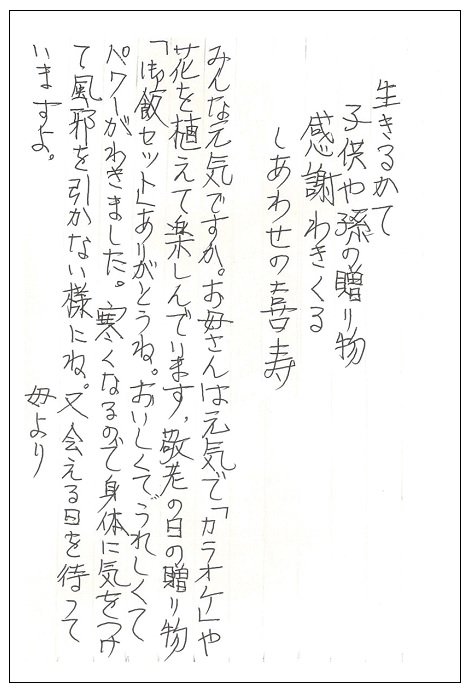 生きるかて
子供や孫の贈り物
感謝わきくる
しあわせの喜寿
みんな元気ですか。お母さんは元気で「カラオケ」や
花を植えて楽しんでいます。敬老の日の贈り物
「御飯セット」ありがとうね。おいしくてうれしくて
パワーがわきました。寒くなるので身体に気をつけ
て風邪を引かない様にね。又会える日を待って
いますよ。
母より